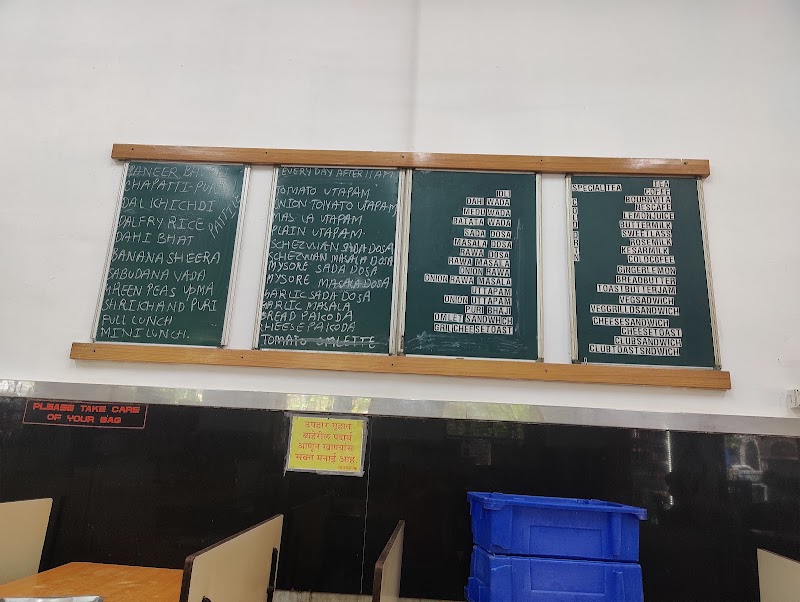 PANEER
CHAPATTI-PULAV
DAL KHICHDI
DALFRY RICE
DAHI BHAT
BANANA SHEERA
SABUDANA VADA
GREEN PEAS UPMA
SHRIKHAND PURI
FULL LUNCH
MINI LUNCH.
EVERY DAY AFTER 11 AM
TOMATO UTAPAM
ONION TOMATO UTAPAM
MAS LA UTAPAM
PLAIN UTAPAM.
SCHEZWAN SADA DOSA
SCHEZWAN MASALA DOSA
MYSORE SADA DOSA
MYSORE MASALA DOSA
GARLIC SADA DOSA
GARLIC MASALA
BREAD PAKODA
CHEESE PAKODA
TOMATO OMLETTE
IDLI
DAHI WADA
MEDUWADA
BATATA WADA
SADA DOSA
MASALA DOSA
RAWA DOSA
RAWA MASALA
ONION RAWA
ONION RAWA MASALA
UTTAPAM
ONION UTTAPAM
PURI BHAJI
OMLET SANDWICH
GRILCHEESETOAST
SPECIALTEA
TEA
COFFEE
BOURNVITA
NESCAFE
LEMONJUICE
BUTTERMILK
SWEETLASSI
ROSEMILK
KESARMILK
COLDCOFFEE
GINGERLEMON
BREADBUTTER
TOASTBUTTERJAM
VEGSADWICH
VEGGRILLDSANDWICH
CHEESESANDWICH
CHEESETOAST
CLUBSANDWICH
CLUBTOASTSNDWICH
PLEASE TAKE CARE
OF YOUR BAG
उपहार गृहात
बाहेरील पदार्थ
आणून खाण्यास
सक्त मनाई आहे